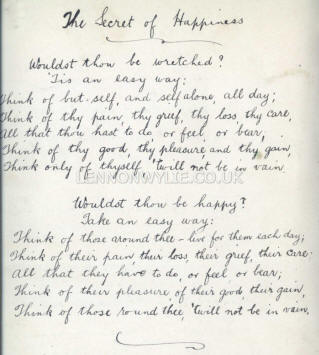 The Secret of Happiness
Wouldst thou be wretched?
'Tis an easy way:
Think of but self, and self alone, all day;
Think of thy pain, thy grief, thy loss, thy care,
All that thou hast to do, or feel, or bear,
Think of thy good, thy pleasure, and thy gain,
Think only of thyself, 'twill not be in vain.
LENNONWYLIE.CO.UK
Wouldst thou be happy?
Take an easy way:
Think of those around thee – live for them each day;
Think of their pain, their loss, their grief, their care;
All that they have to do, or feel or bear;
Think of their pleasure, of their good, their gain,
Think of those 'round thee 'twill not be in vain.